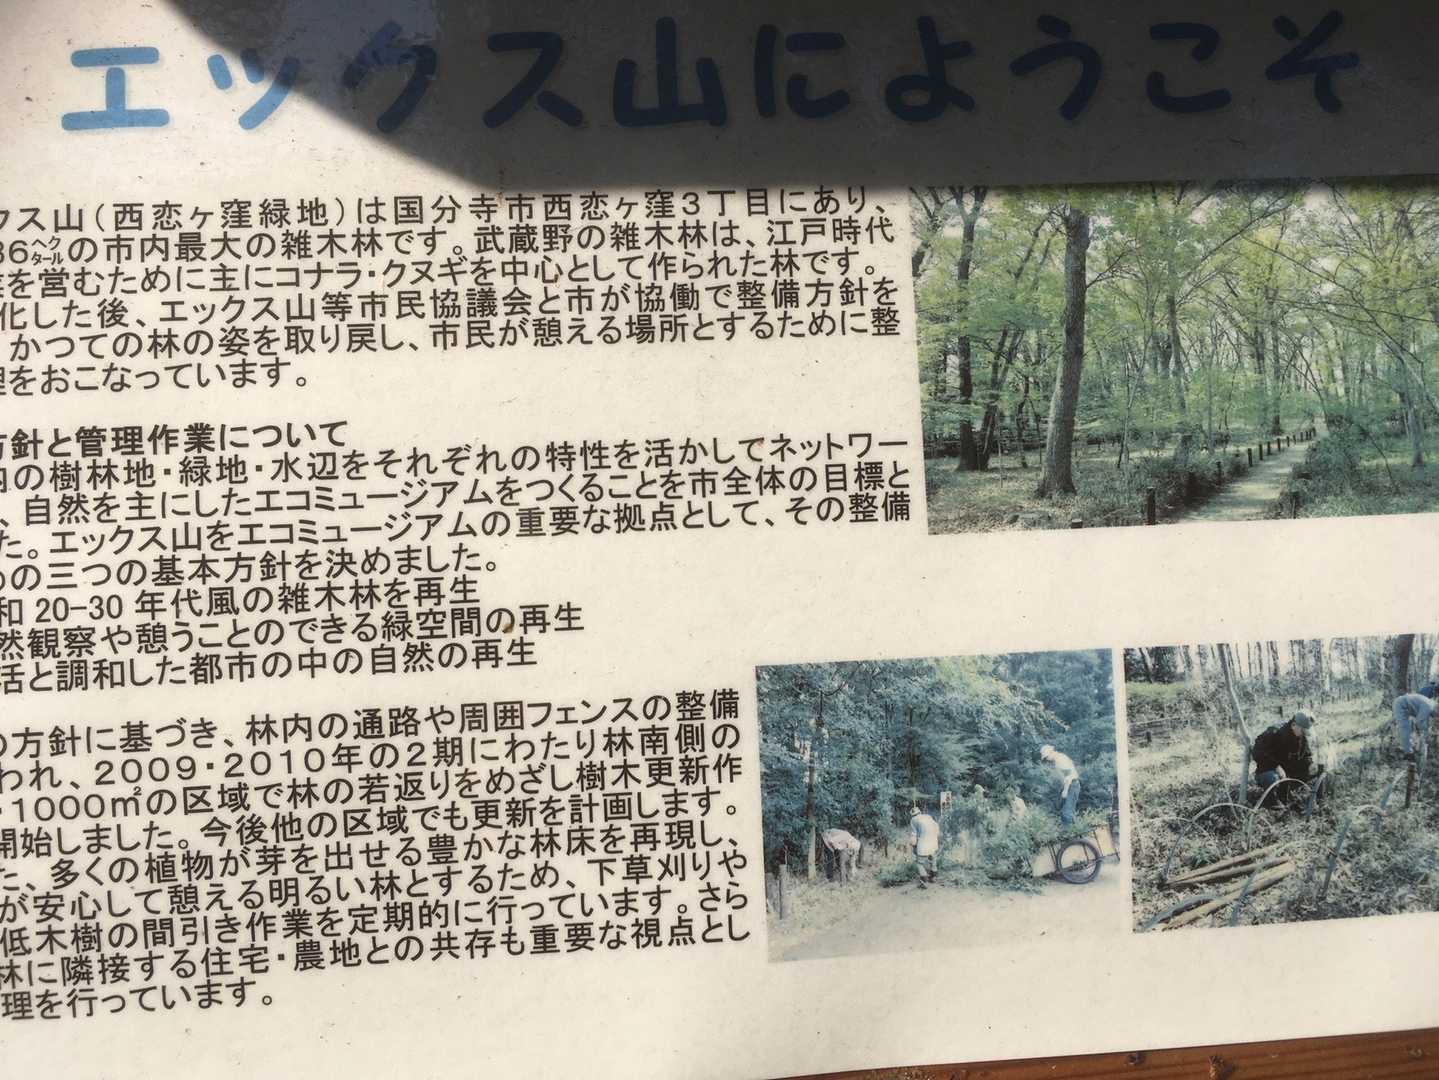 エックス山にようこそ
クス山(西恋ヶ窪緑地)は国分寺市西恋ヶ窪3丁目にあり、
36ヘクタールの市内最大の雑木林です。武蔵野の雑木林は、江戸時代
を営むために主にコナラ・クヌギを中心として作られた林です。
化した後、エックス山等市民協議会と市が協働で整備方針を
、かつての林の姿を取り戻し、市民が憩える場所とするために整
理をおこなっています。
方針と管理作業について
内の樹林地・緑地・水辺をそれぞれの特性を活かしてネットワー
、自然を主にしたエコミュージアムをつくることを市全体の目標と
た。エックス山をエコミュージアムの重要な拠点として、その整備
めの三つの基本方針を決めました。
和 20-30 年代風の雑木林を再生
然観察や憩うことのできる緑空間の再生
活と調和した都市の中の自然の再生
の方針に基づき、林内の通路や周囲フェンスの整備
われ、2009・2010年の2期にわたり林南側の
・1000㎡の区域で林の若返りをめざし樹木更新作
開始しました。今後他の区域でも更新を計画します。
た、多くの植物が芽を出せる豊かな林床を再現し、
が安心して憩える明るい林とするため、下草刈りや
低木樹の間引き作業を定期的に行っています。さら
林に隣接する住宅・農地との共存も重要な視点とし
理を行っています。